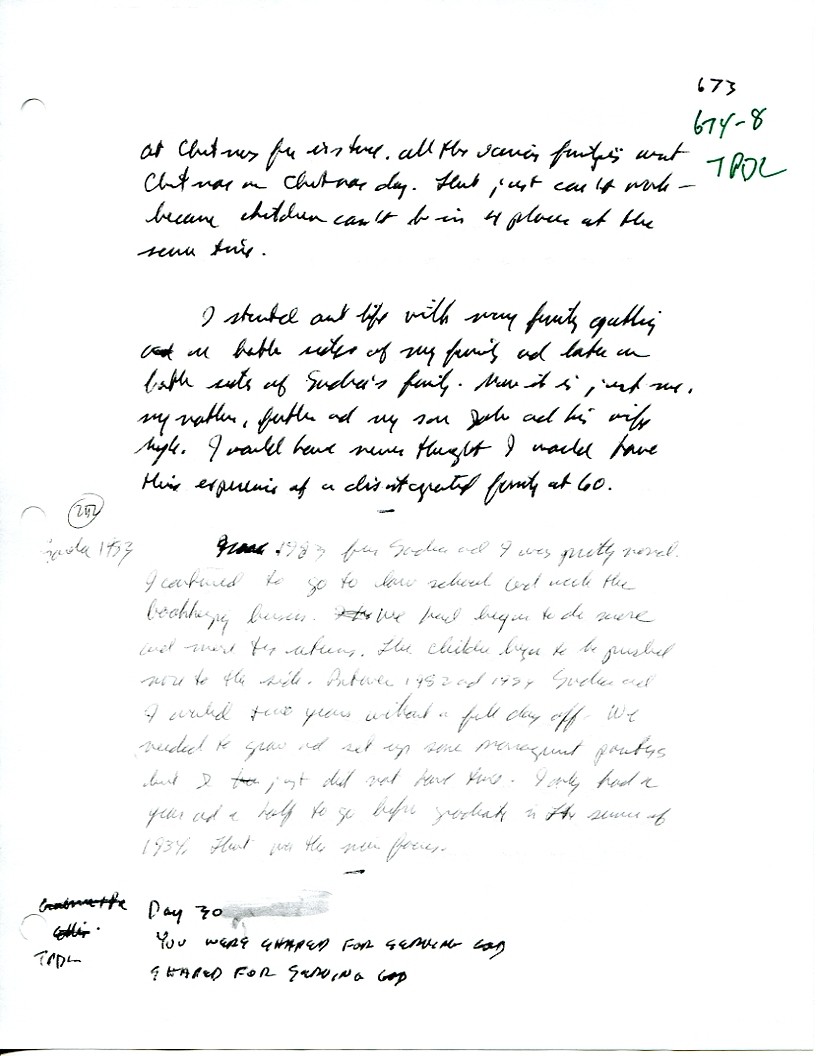 673
674-8
TPDL
at Christmas for instance. all the various families want
Christmas on Christmas day. That just can't work –
because children can't be in 4 places at the
same time.
I started out life with many family
out on both sides of my family and later on
both sides of Sudea's family. Now it is just me,
my mother, father and my son and his wife
I would have never thought I would have
this experience of a disintegrated family at 60.
202
1983
1983 for and I was pretty normal.
I continued to go to law school and work the
bookkeeping business. We had begun to do more
and more tax returns. The children began to be pushed
more to the side. Between 1982 and 1984 and
I worked two years without a full day off. We
needed to grow and set up some management
but I just did not have time. I only had a
year and a half to go before graduate in the summer of
1984. That was the main focus.
Day 30
TPDL
YOU WERE SHAPED FOR SERVING GOD
SHAPED FOR SERVING GOD